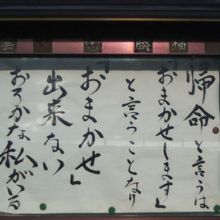 帰命と言うは
「おまかせします」
と言うことなり
「おまかせ」
出来ない
おろかな私がいる